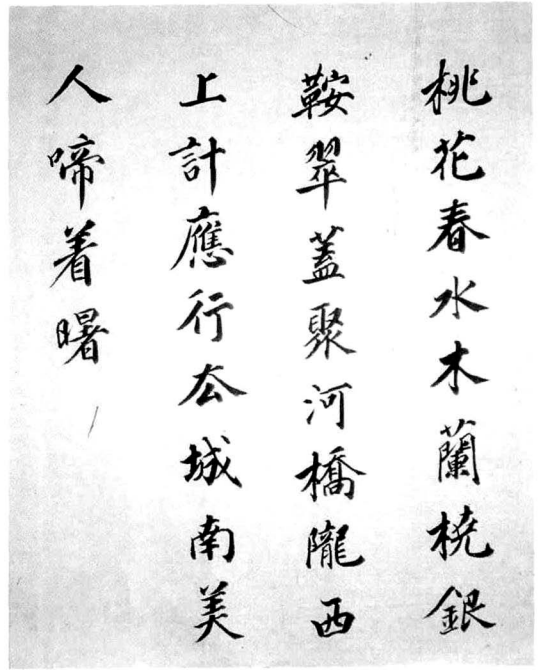 桃花春水木蘭橈銀
鞍翠蓋聚河橋隴西
上計應行去城南美
人啼着曙